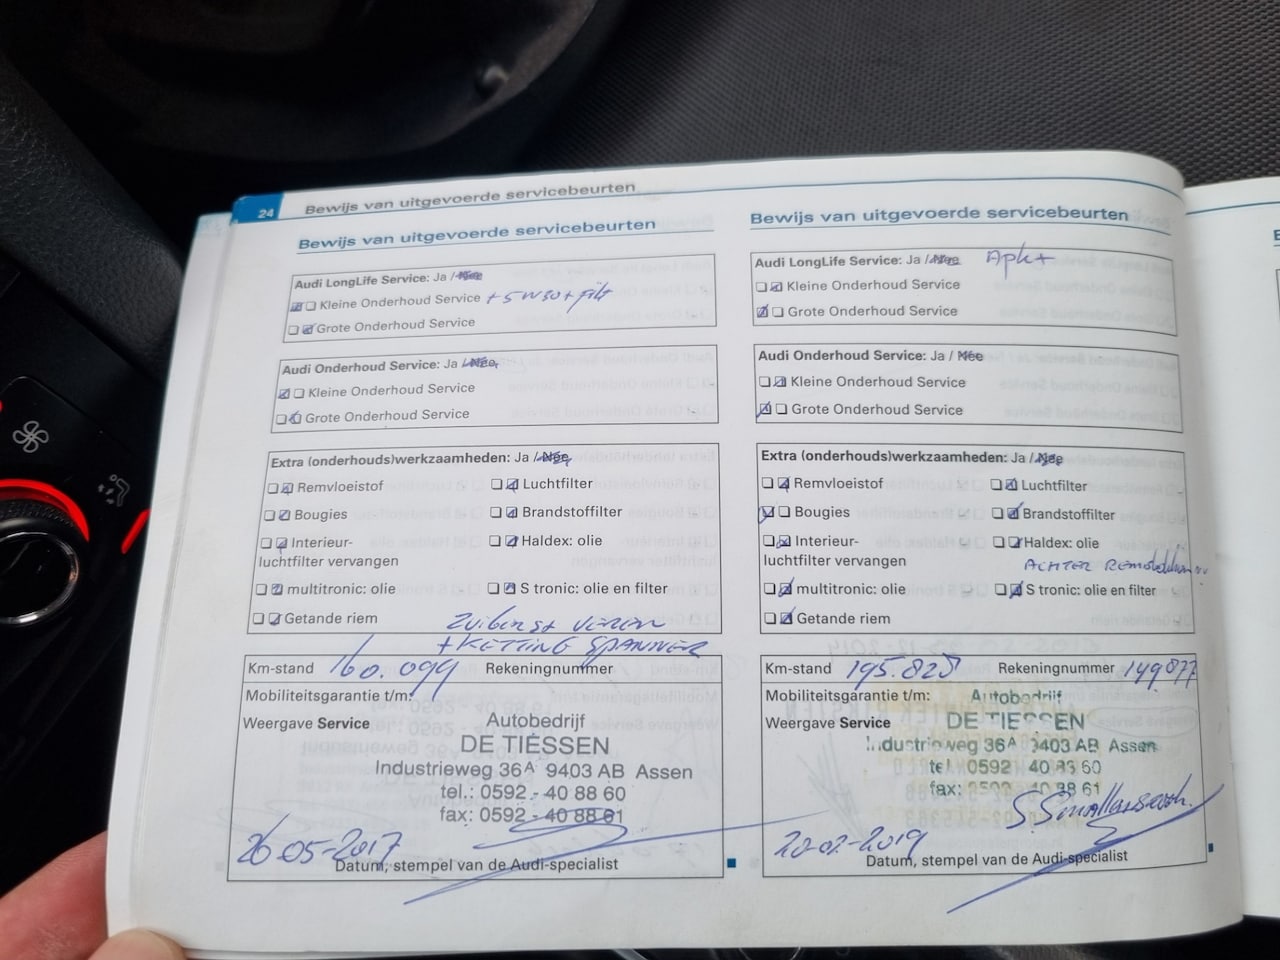 24 Bewijs van uitgevoerde servicebeurten
Bewijs van uitgevoerde servicebeurten
Audi LongLife Service: Ja / Nee
Kleine Onderhoud Service + 5W30 + filt
Grote Onderhoud Service
Audi Onderhoud Service: Ja / Nee
Kleine Onderhoud Service
Grote Onderhoud Service
Extra (onderhouds)werkzaamheden: Ja / Nee
Remvloeistof Luchtfilter
Bougies Brandstoffilter
Interieur- Haldex: olie
luchtfilter vervangen
multitronic: olie S tronic: olie en filter
Getande riem
+ KETTING SPANNER
Km-stand 160.099 Rekeningnummer
Mobiliteitsgarantie t/m:
Weergave Service
Autobedrijf
DE TIESSEN
Industrieweg 36A 9403 AB Assen
tel.: 0592 - 40 88 60
fax: 0592 - 40 88 61
26-05-2017
Datum, stempel van de Audi-specialist
Bewijs van uitgevoerde servicebeurten
Audi LongLife Service: Ja / Nee Apk+
Kleine Onderhoud Service
Grote Onderhoud Service
Audi Onderhoud Service: Ja / Nee
Kleine Onderhoud Service
Grote Onderhoud Service
Extra (onderhouds)werkzaamheden: Ja / Nee
Remvloeistof Luchtfilter
Bougies Brandstoffilter
Interieur- Haldex: olie
luchtfilter vervangen ACHTER
multitronic: olie S tronic: olie en filter
Getande riem
Km-stand 195.828 Rekeningnummer 149877
Mobiliteitsgarantie t/m:
Weergave Service
Autobedrijf
DE TIESSEN
Industrieweg 36A 9403 AB Assen
tel. 0592 40 88 60
fax: 0592 40 88 61
20-02-2019
Datum, stempel van de Audi-specialist